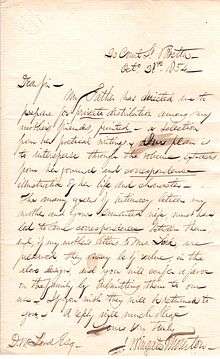 20 Court St. Boston
Oct. 28th 1854
Dear Sir -
My Father has directed me to
prepare for private distribution among my
mother's friends, printed - a selection
from her poetical writings. Our plan is
to intersperse through the volume extracts
from her journal and correspondence
illustrative of her life and character.
The many years of intimacy between my
mother and your lamented wife must have
led to some correspondence between them
any of my mother's letters to Mrs. Lord are
preserved they may be of value in the
above design, and you will confer a favor
on the family by submitting them to our
use - If you wish they will be returned to
you. A reply will much oblige
Yours very truly
J. Wingate Thornton
D. W. Lord Esq.